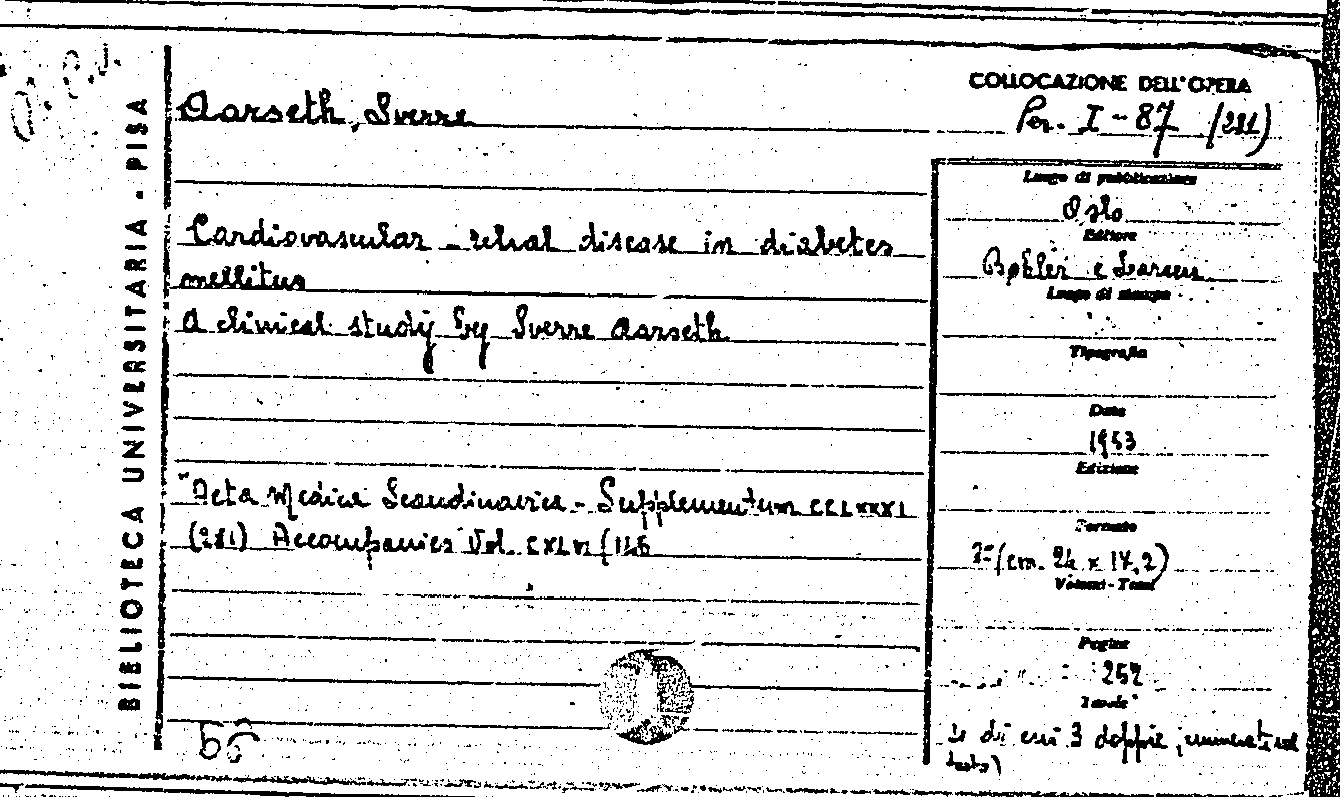 BIBLIOTECA UNIVERSITARIA - PISA
COLLOCAZIONE DELL'OPERA
Per. I - 87 (281)
Aarseth, Sverre
Cardiovascular - renal disease in diabetes
mellitus
A clinical study by Sverre Aarseth
"Acta Medica Scandinavica - Supplementum CCLXXXI
(281) Accompanies Vol. CXLVI (146
Luogo di pubblicazione
Oslo
Editore
Luogo di stampa
Tipografia
Data
1953
Edizione
Formato
(cm. 24 x 17,2)
Volumi - Tomi
Pagine
257
Tavole
di cui 3 doppie,